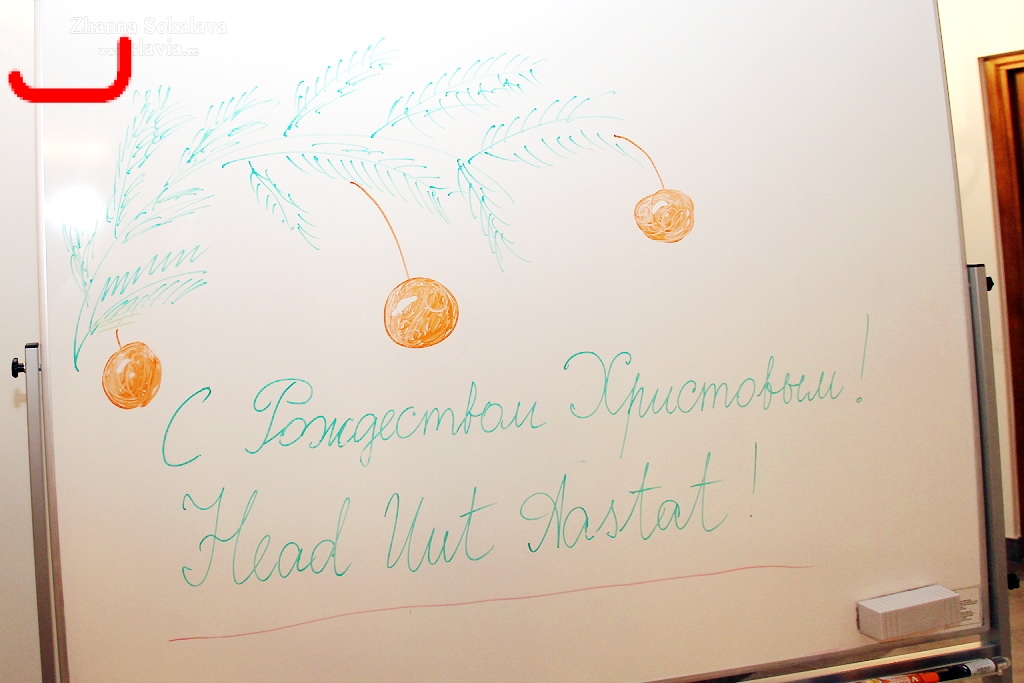 Zhanna Sokalava
С Рождеством Христовым!
Head Uut Aastat!